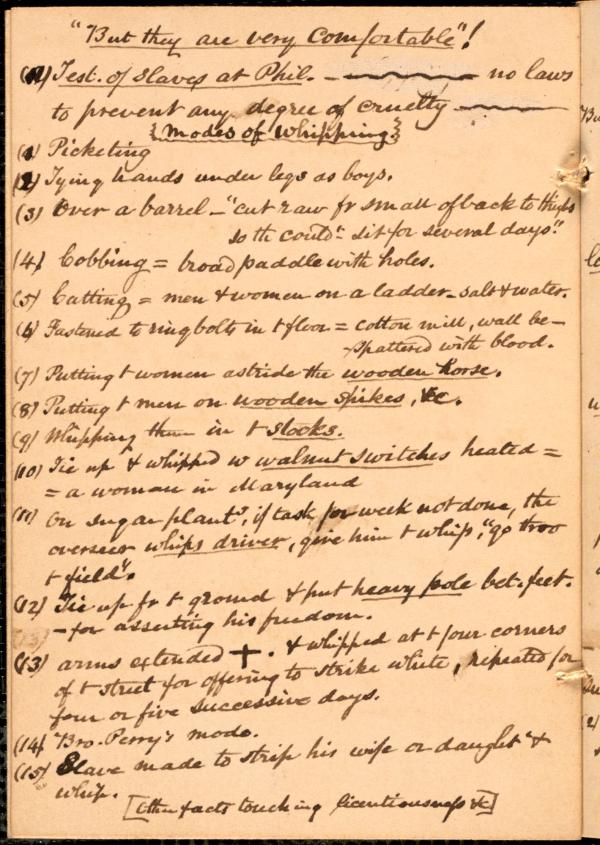 "But they are very comfortable"!
Test. of slaves at Phil. — no laws
to prevent any degree of cruelty —
{Modes of Whipping}
(1) Picketing
(2) Tying hands under legs as boys.
(3) Over a barrel — "cut raw fr small of back to thighs
so th could n't sit for several days".
(4) Cobbing = broad paddle with holes.
(5) Catting = men & women on a ladder — salt & water.
(6) Fastened to ringbolts in t floor = cotton mill, wall be-
spattered with blood.
(7) Putting t women astride the wooden horse.
(8) Putting t men on wooden spikes, &c.
(9) Whipping them in t stocks.
(10) Tie up & whipped w walnut switches heated =
= a woman in Maryland
(11) On sugar plant^s, if task for week not done, the
overseer whips driver, give him t whip, "go thro
t field".
(12) Tie up fr t ground & put heavy pole bet. feet.
- for asserting his freedom.
(13) arms extended +. & whipped at t four corners
of t street for offering to strike white, repeated for
four or five successive days.
(14) Bro. Perry's mode.
(15) Slave made to strip his wife or daught^r &
whip.
[Other facts touching licentiousness &c]